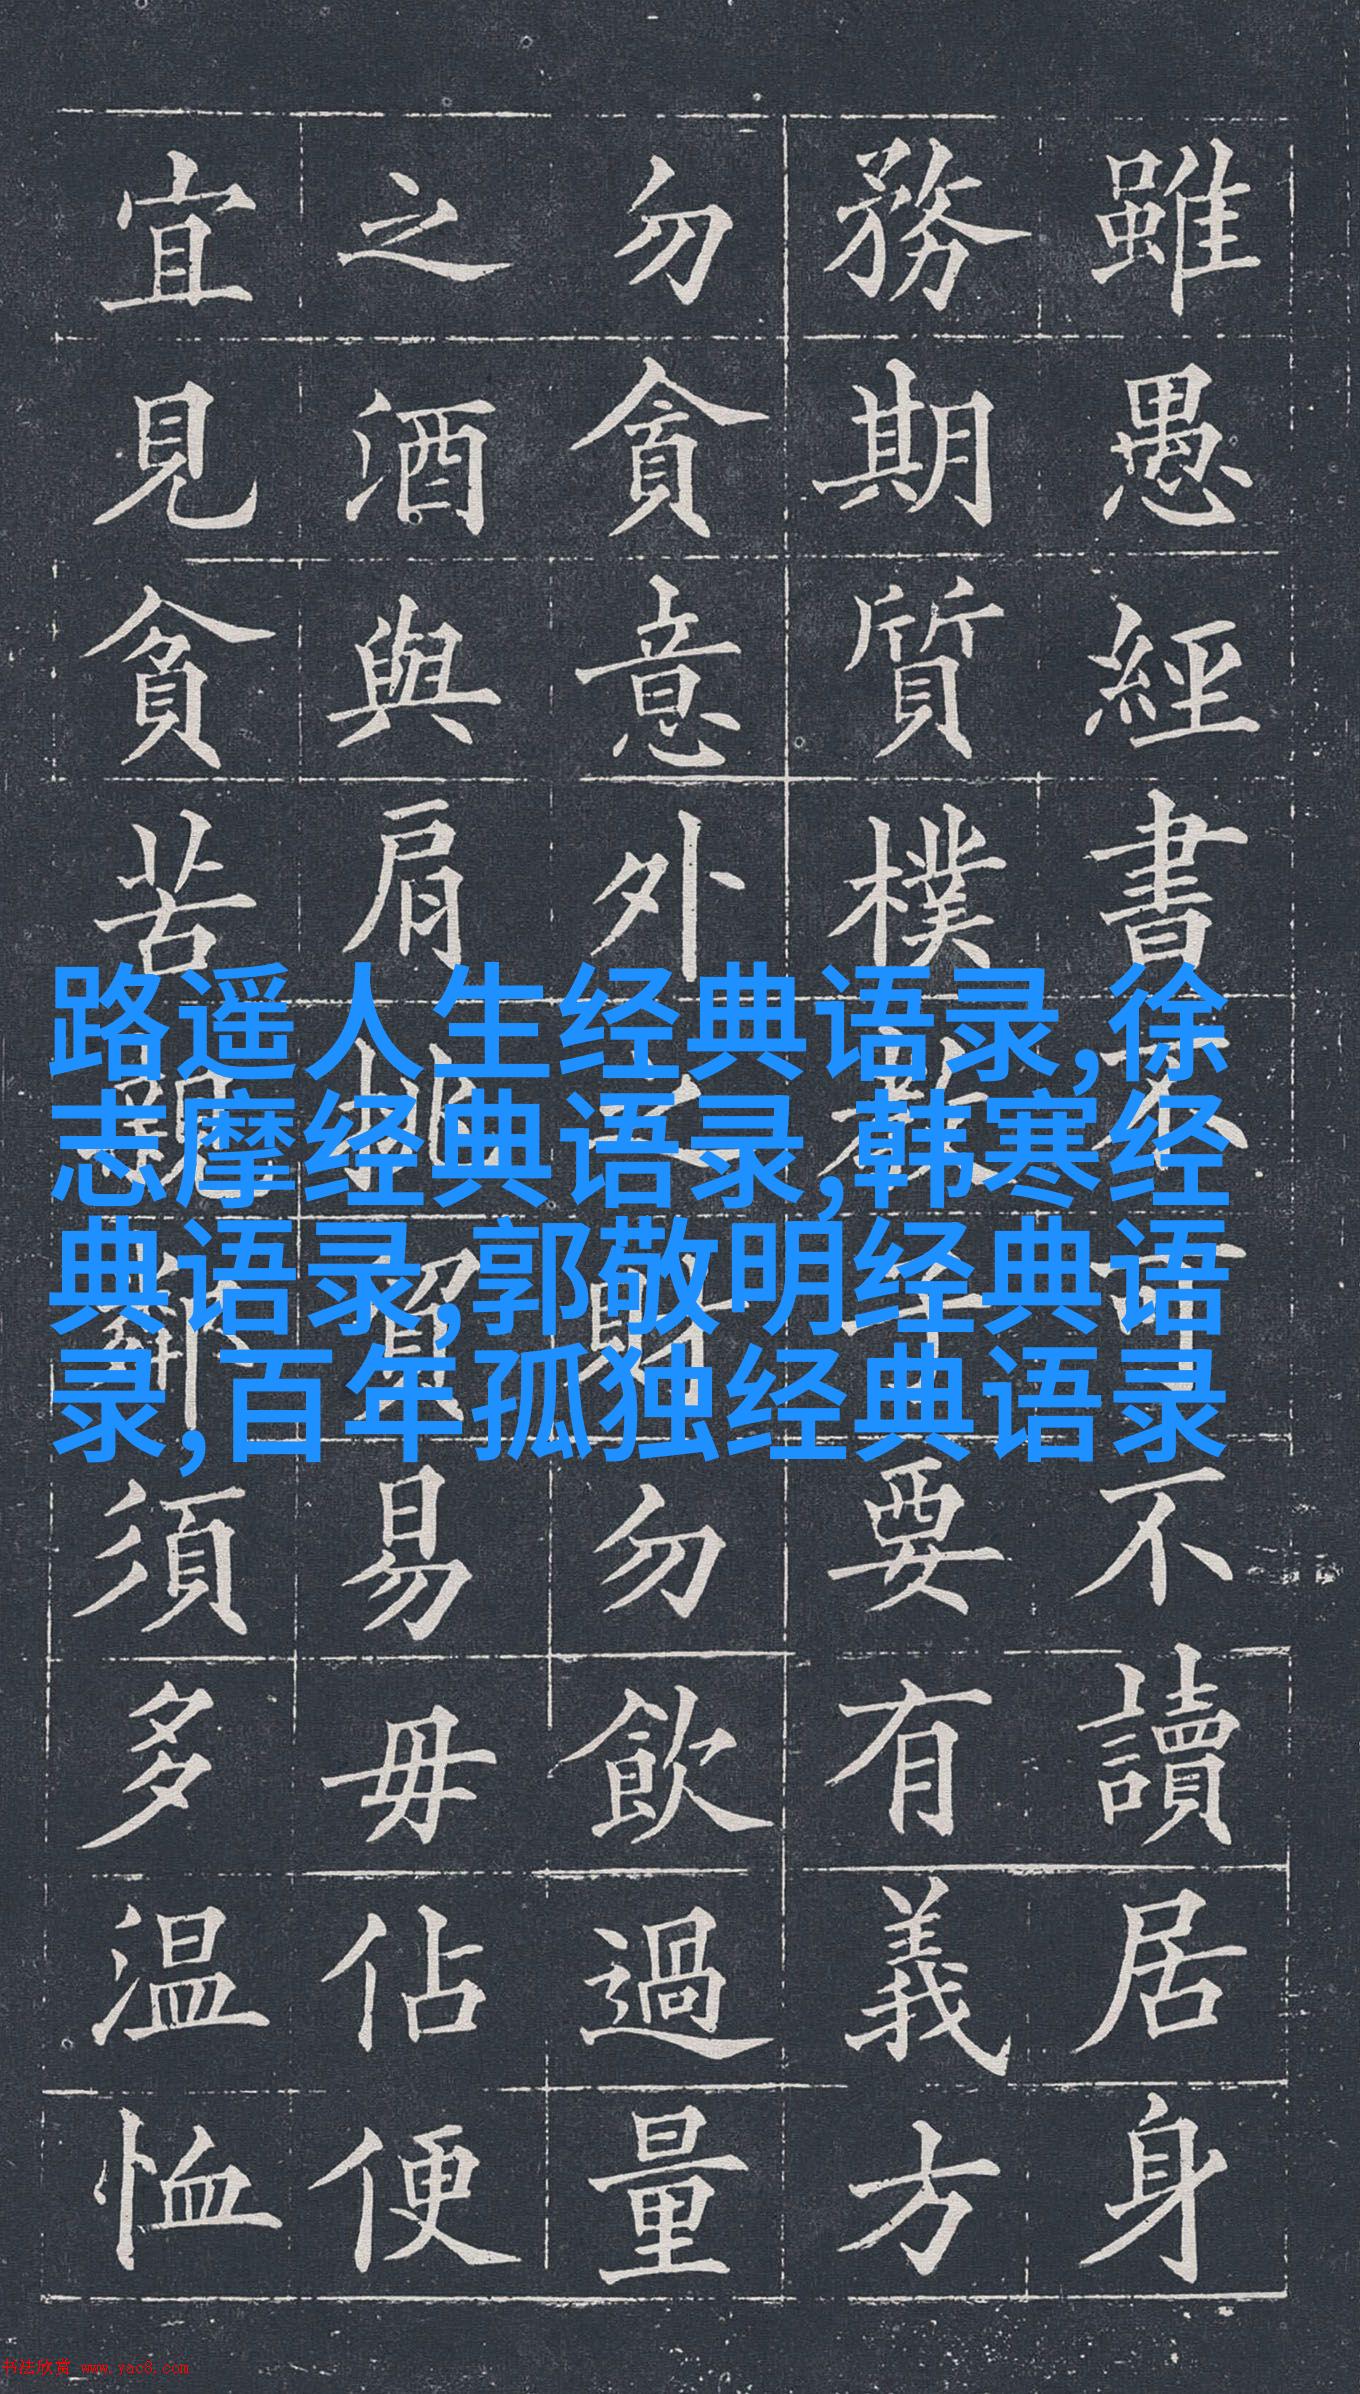 雖愚經書不可不讀居身
務期質樸教子要有義方
勿貪意外之財勿飲過量
之酒與肩挑貿易毋佔便
宜見貧苦親鄰須多温恤
路遥人生经典语录,徐
志摩经典语录,韩寒经
典语录,郭敬明经典语
录,百年孤独经典语录
书法欣赏 www.yac8.com